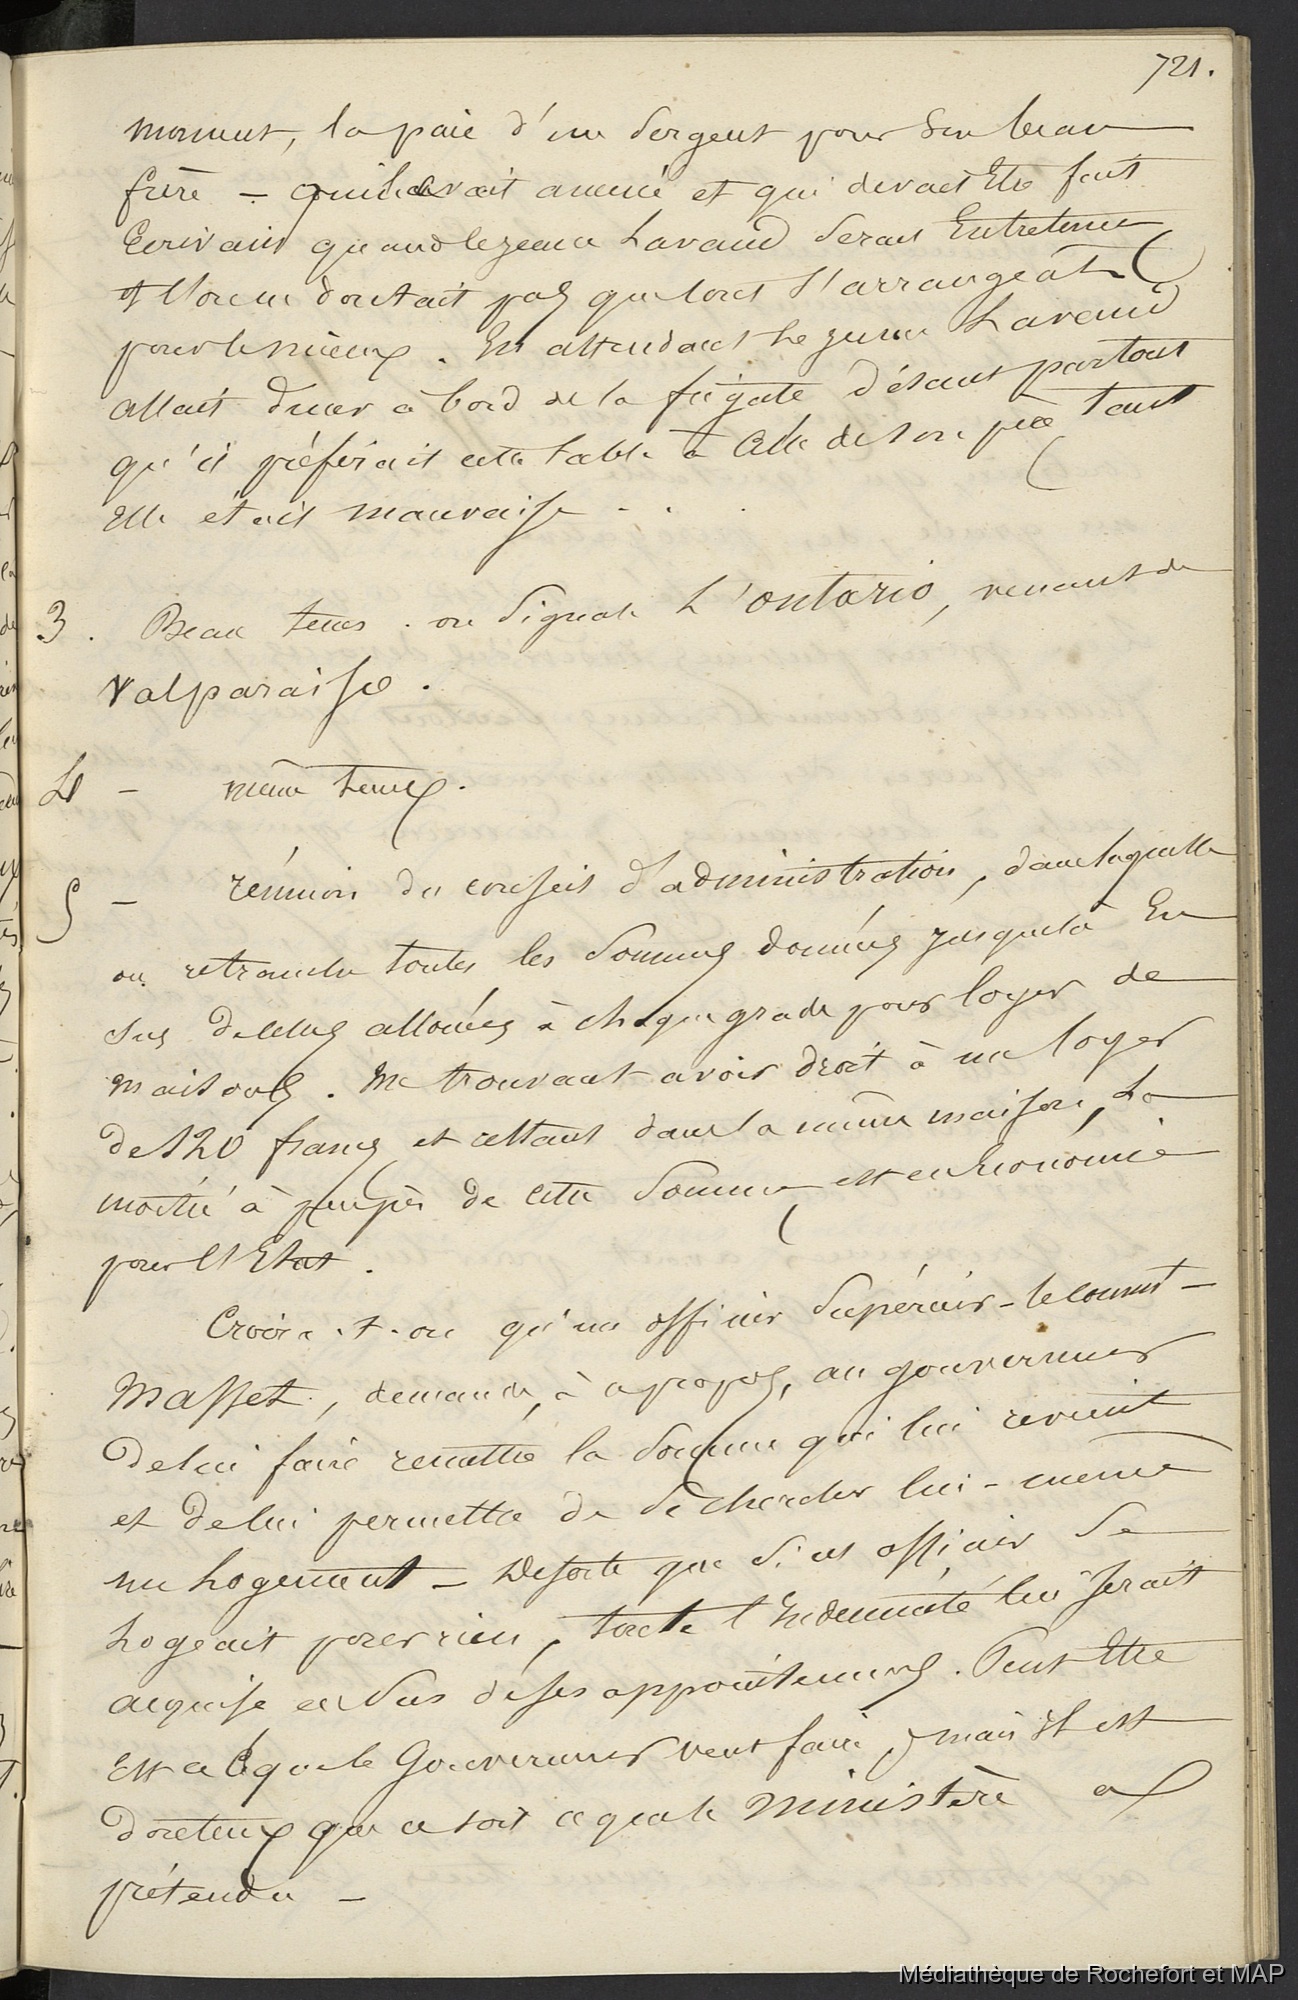 721.
moment, la paie d'un Sergent pour son beau
frère – qu'il avait amené et qui devait Etre fait
Ecrivain quand le jeune Lavaud serait Entretenu
et l'on ne doutait pas que tout s'arrangeât
pour le mieux. En attendant le jeune Lavaud
allait diner à bord de la frégate disant partout
qu'il préférait cette table à Celle de son père tant
Elle était mauvaise . . .
3. Beau tems. on signale L'ontario, venant de
Valparaiso.
4 – même tems.
5 – réunion du conseil d'administration, dans laquelle
on retranche toutes les sommes données jusque là En
sus de celles allouées à chaque grade pour loyer de
maisons. Me trouvant avoir droit à un loyer
de 120 francs et restant dans la même maison, La
moitié à peu près de cette somme est en Economie
pour l'Etat.
Croira-t-on qu'un officier Supérieur – le Commt –
Masset, demande, à ce propos, au gouverneur
de lui faire remettre la somme qui lui revient
et de lui permettre de se chercher lui-même
un Logement – De sorte que si cet officier se
Logeait pour rien, toute l'Indemnité lui serait
acquise en sus de ses appointemens. Peut Etre
Est ce ce que le Gouverneur veut faire, mais il est
douteux que ce soit ce que le ministère a
prétendu –
Médiathèque de Rochefort et MAP